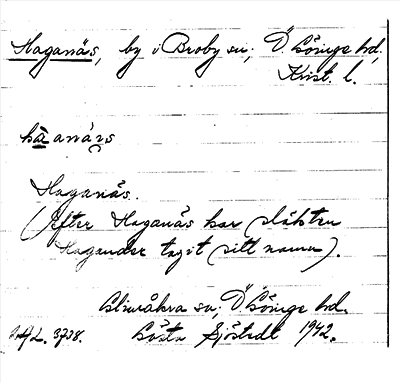 Haganäs, by i Broby sn; Ö. Göinge hd,
Krist. l.
hàanä́s
Haganäs.
(Efter Haganäs har släkten
Hagander tagit sitt namn).
Glimåkra sn; Ö. Göinge hd.
3738. Gösta Sjöstedt 1942.